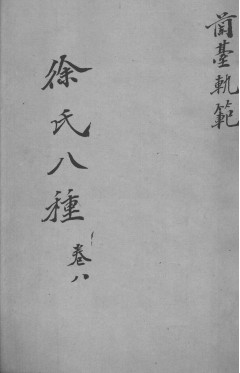 蘭臺軌範
徐氏八種 卷八